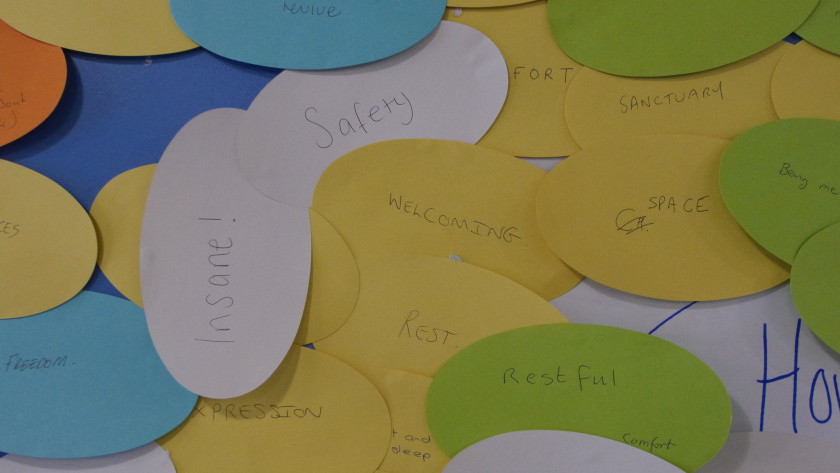 revive
FORT
SANCTUARY
Safety
Being me
WELCOMING
SPACE
Insane!
ES
REST.
FREEDOM.
Restful
XPRESSION
t and
sleep
Comfort
How